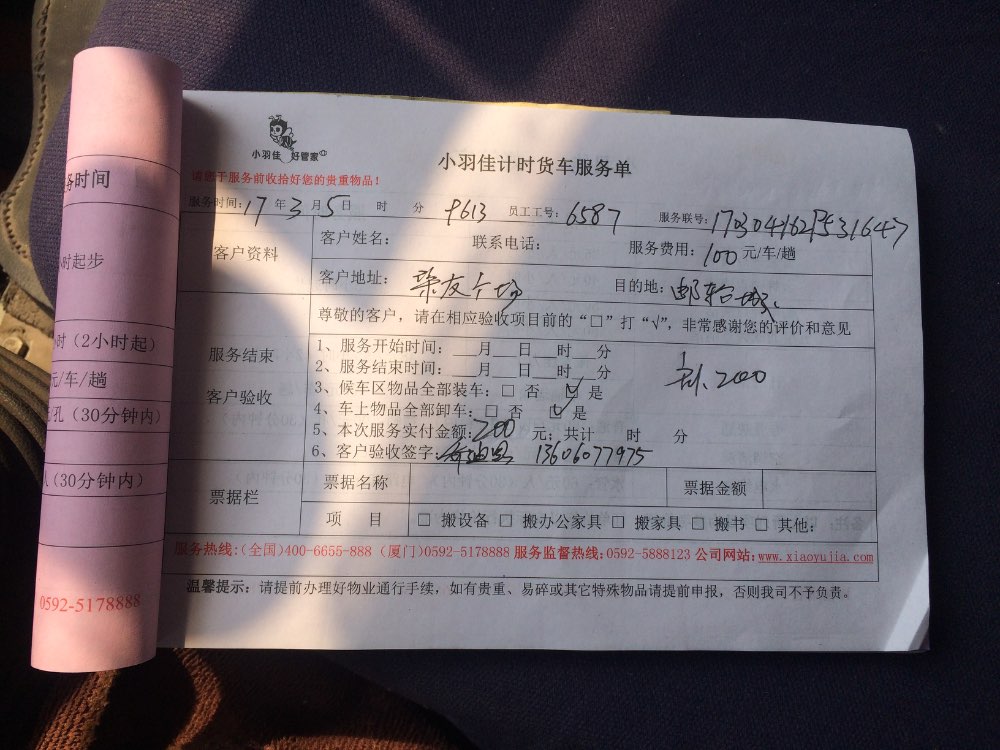 小羽佳 好管家
小羽佳计时货车服务单
请您于服务前收拾好您的贵重物品！
服务时间：17 年 3 月 5 日 时 分 员工工号：6587 服务联号：
客户资料
客户姓名： 联系电话： 服务费用：100 元/车/趟
客户地址： 目的地：邮轮城
尊敬的客户，请在相应验收项目前的“□”打“√”，非常感谢您的评价和意见
服务结束
客户验收
1、服务开始时间：___月___日___时___分
2、服务结束时间：___月___日___时___分
3、候车区物品全部装车：□ 否 ☑ 是
4、车上物品全部卸车：□ 否 ☑ 是
5、本次服务实付金额：200 元；共计 时 分
6、客户验收签字： 13606077975
票据栏
票据名称 票据金额
项 目 □ 搬设备 □ 搬办公家具 □ 搬家具 □ 搬书 □ 其他：
服务热线：(全国)400-6655-888 (厦门)0592-5178888 服务监督热线：0592-5888123 公司网站：www.xiaoyujia.com
温馨提示：请提前办理好物业通行手续，如有贵重、易碎或其它特殊物品请提前申报，否则我司不予负责。
务时间
小时起步
时（2小时起）
元/车/趟
孔（30分钟内）
（30分钟内）
0592-5178888